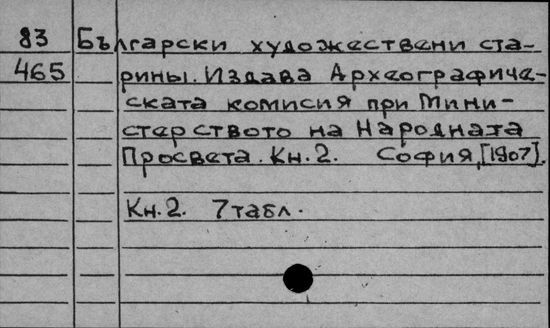 83 Български художествени ста-
465 рины. Издава Археографиче-
ската комисия при Мини-
стерството на Народната
Просвета. Кн. 2. София, [1907].
Кн. 2. 7 табл.